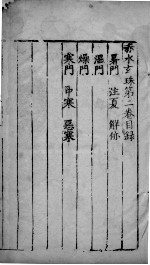 赤水玄珠第二卷目錄
暑門 注夏 解㑊
濕門
燥門
寒門 中寒 惡寒